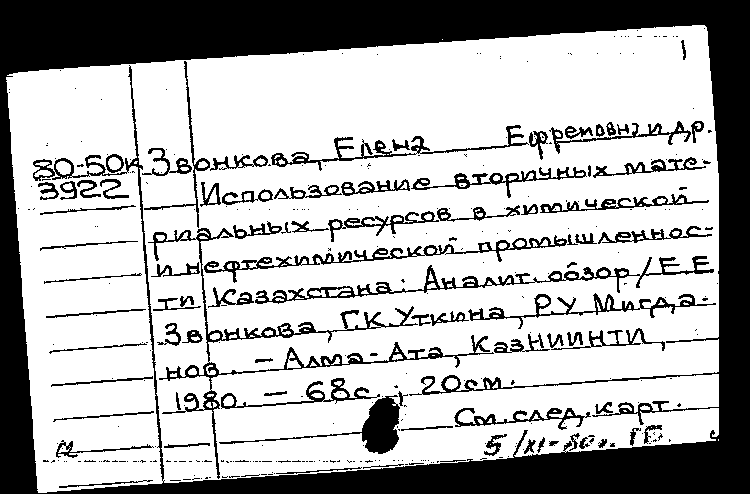 1
80-50к Звонкова, Елена Ефремовна и др.
3922 Использование вторичных мате-
риальных ресурсов в химической
и нефтехимической промышленнос-
ти Казахстана: Аналит. обзор / Е.Е.
Звонкова, Г.К. Уткина, Р.У. Мигда-
нов. — Алма-Ата, КазНИИНТИ,
1980. — 68с.; 20см.
См. след. карт.
5/XI-80г.